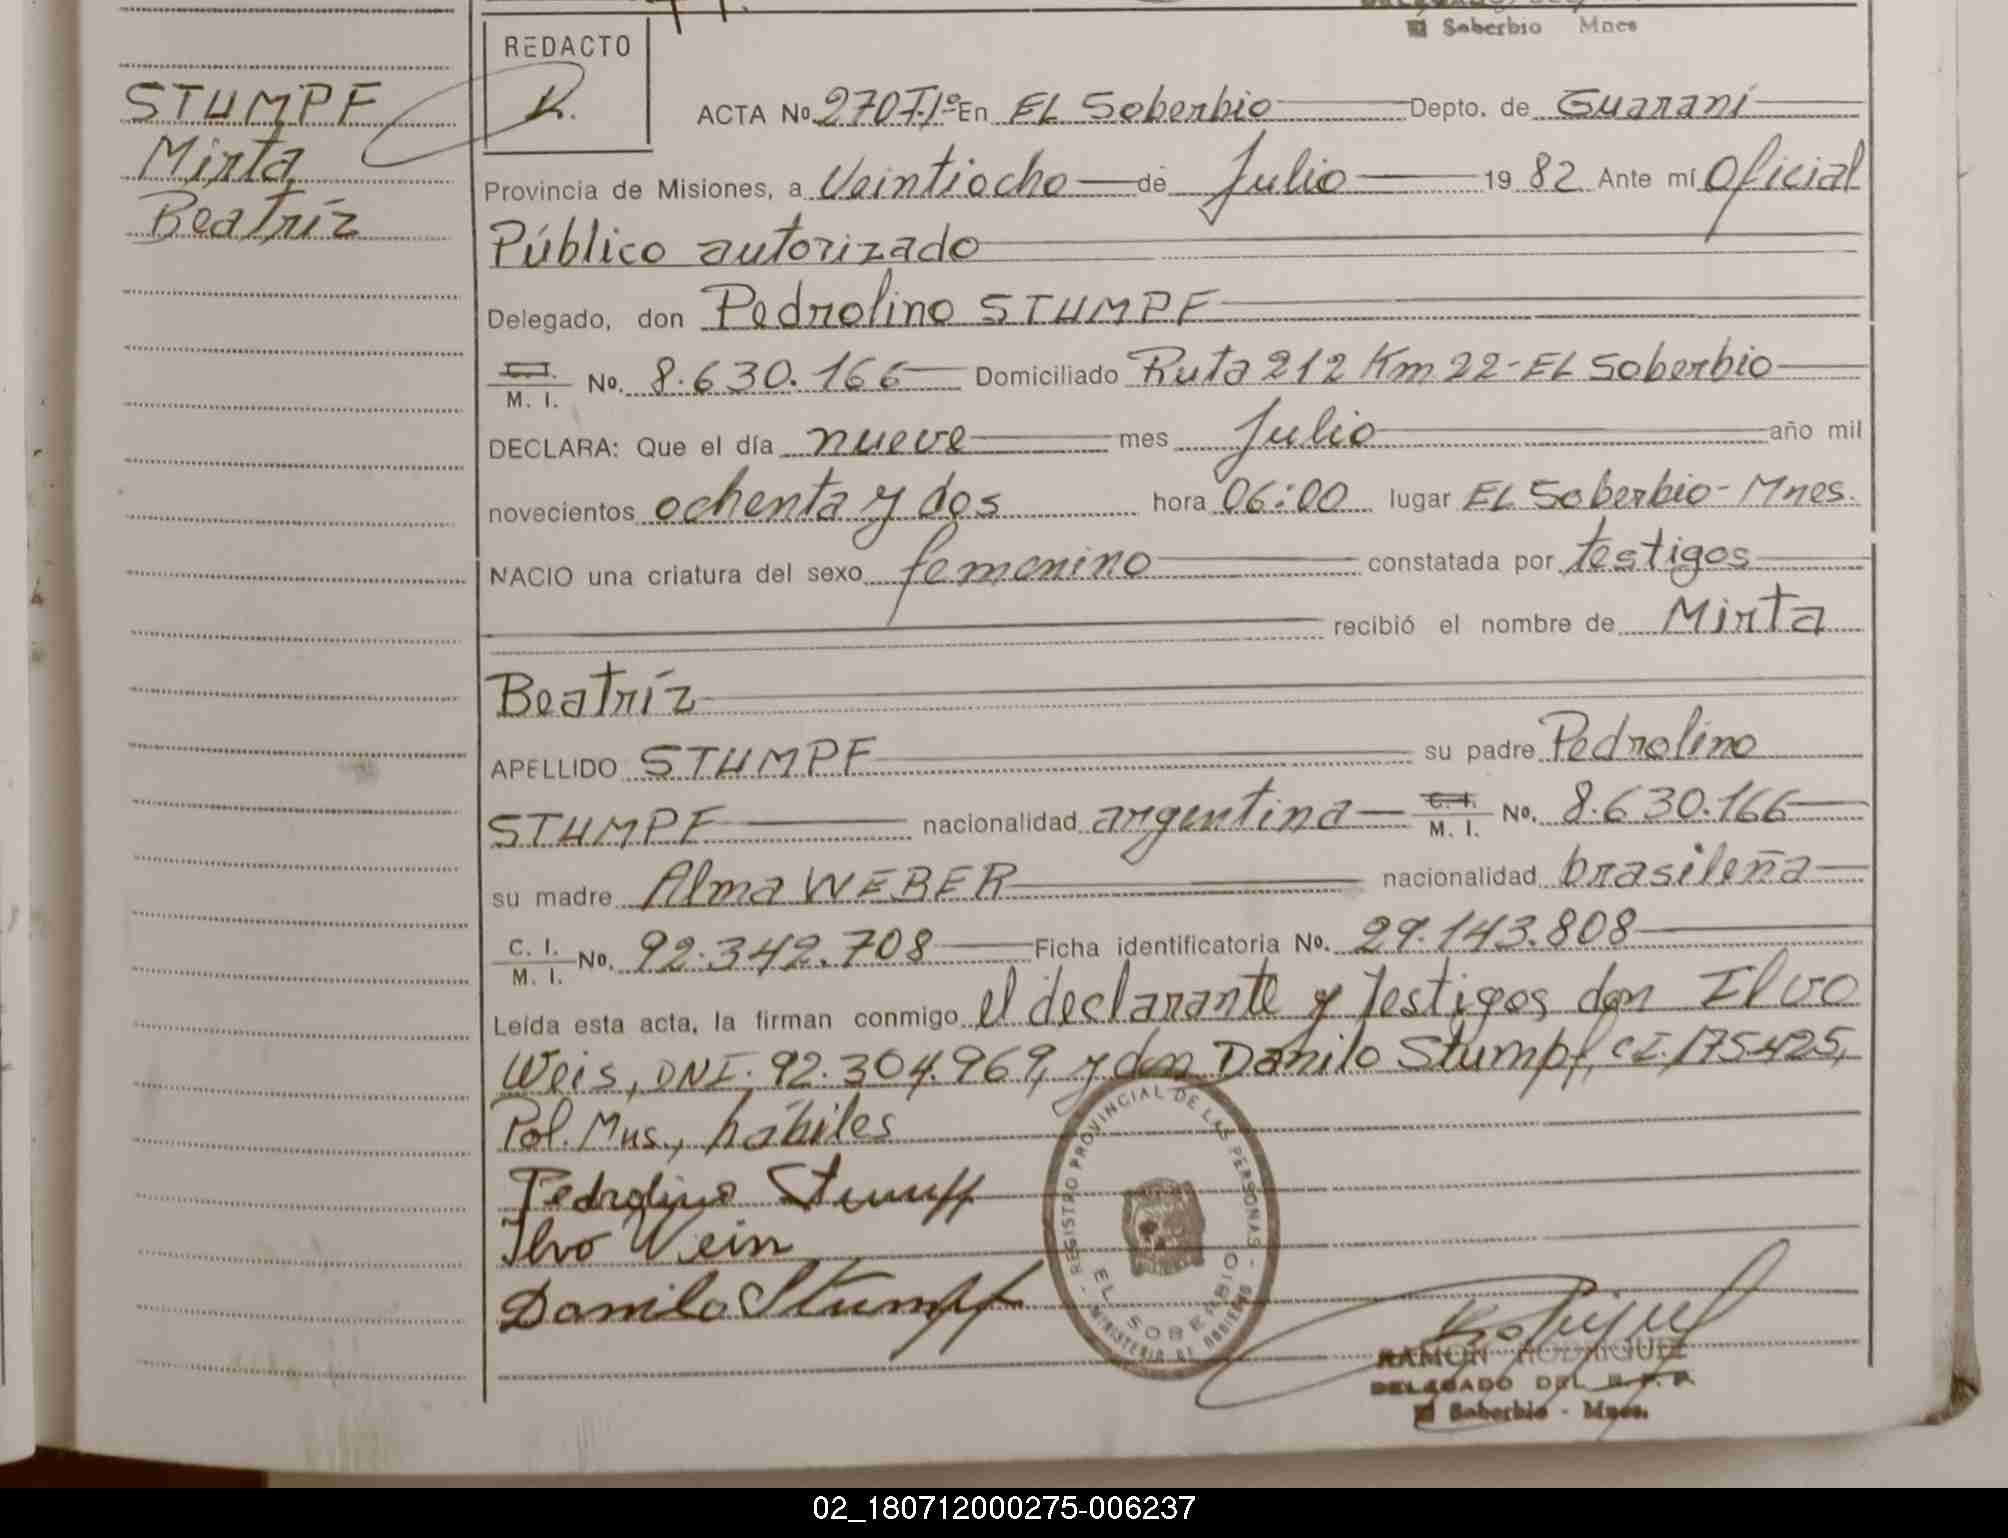 Soberbio Mnes
REDACTO
R.
STUMPF
Mirta
Beatríz
ACTA No. 270T.1º En EL Soberbio Depto. de Guaraní
Provincia de Misiones, a Veintiocho de Julio 19 82 Ante mí Oficial
Público autorizado
Delegado, don Pedrolino STUMPF
C. I.
M. I. No. 8.630.166 Domiciliado Ruta 212 Km 22-EL Soberbio
DECLARA: Que el día nueve mes Julio año mil
novecientos ochenta y dos hora 06:00 lugar EL Soberbio-Mnes.
NACIO una criatura del sexo femenino constatada por testigos
recibió el nombre de Mirta
Beatríz
APELLIDO STUMPF su padre Pedrolino
STUMPF nacionalidad argentina C. I. M. I. No. 8.630.166
su madre Alma WEBER nacionalidad brasileña
C. I.
M. I. No. 92.342.708 Ficha identificatoria No. 29.143.808
Leída esta acta, la firman conmigo el declarante y testigos don Ilvo
Weis, DNI. 92.304.969, y don Danilo Stumpf, CI. 175425,
Pol. Mns., hábiles
Pedrolino Stumpf
Ilvo Wein
Danilo Stumpf
REGISTRO PROVINCIAL DE LAS PERSONAS
EL SOBERBIO
MINISTERIO DE GOBIERNO
RAMON RODRIGUEZ
DELEGADO DEL R.P.P.
El Soberbio - Mnes.
02_180712000275-006237